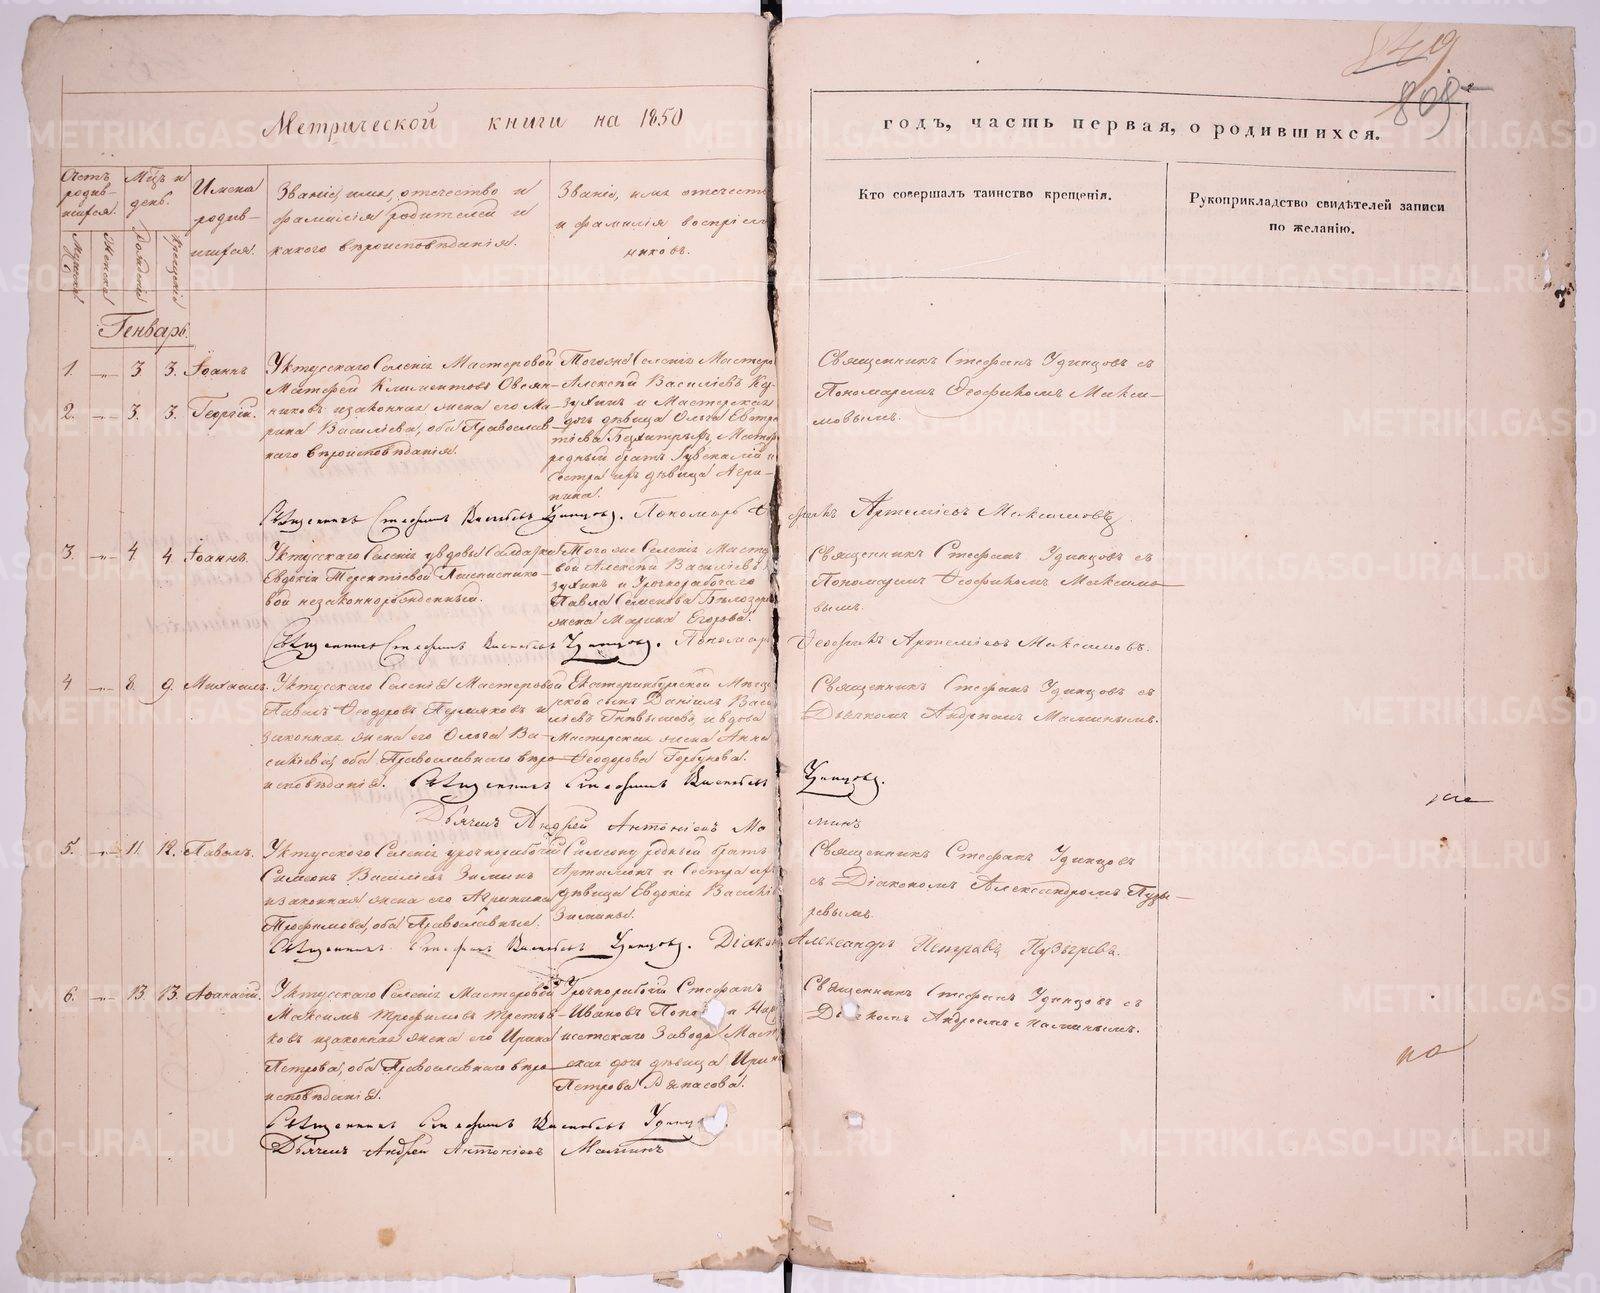 849
805
Метрической книги на 1850
годъ, часть первая, о родившихся.
Счетъ родив-шихся.
Мужеска
Женска
Мѣц. и день.
Рожденія
Крещенія
Имена родив-шихся.
Званіе, имя, отечество и
фамилія родителей и
какого вѣроисповѣданія.
Званіе, имя отечест
и фамилія воспріем
никовъ.
Кто совершалъ таинство крещенія.
Рукоприкладство свидѣтелей записи
по желанію.
Генварь.
1. 3 3. Іоаннъ
2. 3. 3. Георгій.
Уктусскаго Селенія Мастеровой
Матфей Климентовъ Овсян-
никовъ и законная жена его Ма-
рина Василіева, оба Православ-
наго вѣроисповѣданія.
Тогоже Селенія Мастеро
Алексѣй Василіевъ Ку-
зухинъ и Мастерская
дочь дѣвица Ольга Евстра
тіева
родный братъ и
сестра ихъ дѣвица Агри-
пина.
Священникъ Стефанъ Удинцовъ съ
Пономаремъ Феофилактомъ Макси-
мовымъ.
Священникъ Стефанъ Васильевъ Удинцовъ. Пономарь Артеміевъ Максимовъ.
3. 4 4 Іоаннъ.
Уктусскаго Селенія у вдовы Солдатки
Евдокіи Терентіевой Пшенични-
вой незаконнорожденный.
Того же Селенія Масте
вой Алексѣй Василіевъ
зухинъ и Урочнорабочаго
Павла Семенова Бѣлозеро
жена Марина Егорова.
Священникъ Стефанъ Удинцовъ съ
Пономаремъ Феофилактомъ Максимо
вымъ.
Священникъ Стефанъ Васильевъ Удинцовъ. Пономарь Артеміевъ Максимовъ.
4 8. 9. Михаилъ.
Уктусскаго Селенія Мастеровой
Павелъ Феодоровъ Пермяковъ и
законная жена его Ольга Ва-
силіева, оба Православнаго вѣро-
исповѣданія.
Екатеринбургскій Мѣща
сынъ Даніилъ Васи
ліевъ и вдова
Мастерская жена Анна
Феодорова Горбунова.
Священникъ Стефанъ Удинцовъ съ
Дьячкомъ Андреемъ Маминымъ.
Священникъ Стефанъ Васильевъ Удинцовъ.
Дьячекъ Андрей Антоніевъ Маминъ
5. 11. 12. Павелъ.
Уктусского Селенія урочнорабочій
Симеонъ Василіевъ Зиминъ
и законная жена его Агрипина
Трофимова, оба Православные.
Симеону родный братъ
Артамонъ и Сестра ихъ
дѣвица Евдокія Василіе
Зимины.
Священникъ Стефанъ Удинцовъ
съ Діакономъ Александромъ Пузы-
ревымъ.
Священникъ Стефанъ Васильевъ Удинцовъ. Діаконъ Александръ Петровъ Пузыревъ.
6. 13. 13. Афанасій.
Уктусскаго Селенія Мастеровой
Максимъ Трофимовъ Третья
ковъ и законная жена его Ирина
Петрова, оба Православнаго вѣро-
исповѣданія.
Урочнорабочій Стефанъ
Ивановъ и Ниж
исетскаго Завода Масте
ская дочь дѣвица Ирин
Петрова
Священникъ Стефанъ Удинцовъ съ
Дьячкомъ Андреемъ Маминымъ.
Священникъ Стефанъ Васильевъ Удинцовъ.
Дьячекъ Андрей Антоніевъ Маминъ
METRIKI.GASO-URAL.RU